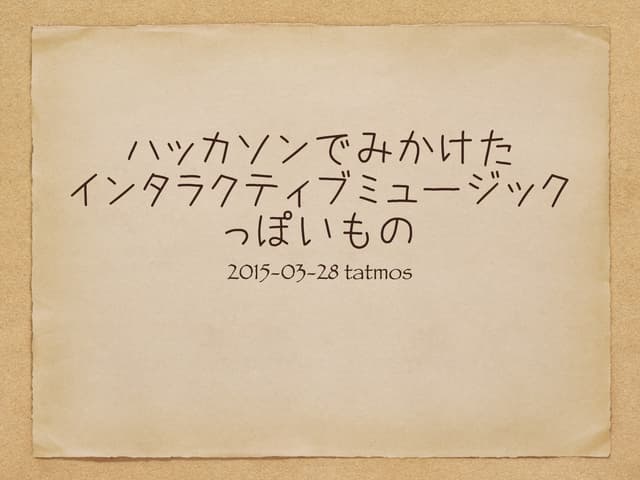 ハッカソンでみかけた
インタラクティブミュージック
っぽいもの
2015-03-28 tatmos